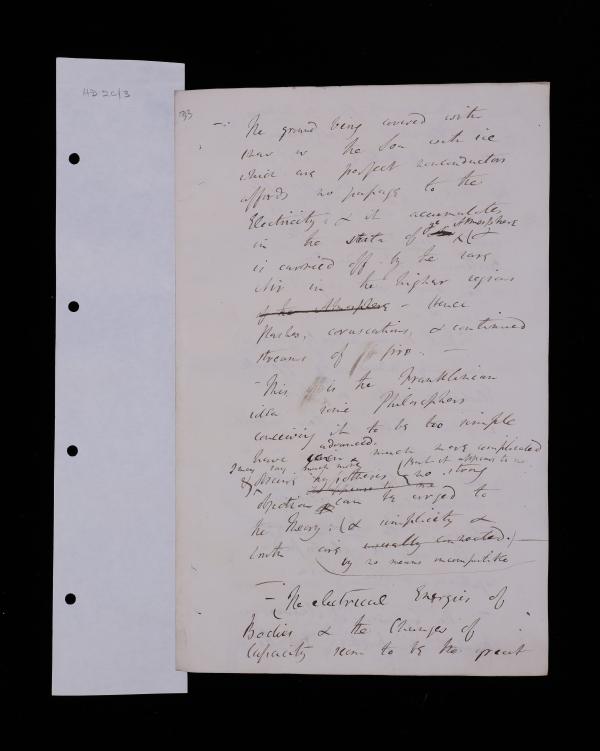 HD 2c/3
133
—. The ground being covered with
snow or the Sea with ice
which are perfect nonconductors
affords no passage to the
Electricity. & it accumulates
in the strata of ye Atmosphere & (&
is carried off by the rare
Air in the higher regions
of the Atmosphere – Hence
flashes, coruscations, & continued
streams of fire. —
– This is the Franklinian
idea some Philosophers
conceiving it to be too simple
have advanced a much more complicated
& I may say much more
obscure hypothesis (But it appears to me
it appears to me no strong
objection can be urged to
the Theory: (& simplicity &
truth are usually connected.) —
by no means incompatible
– The electrical Energies of
Bodies & the Changes of
Capacity seem to be the great